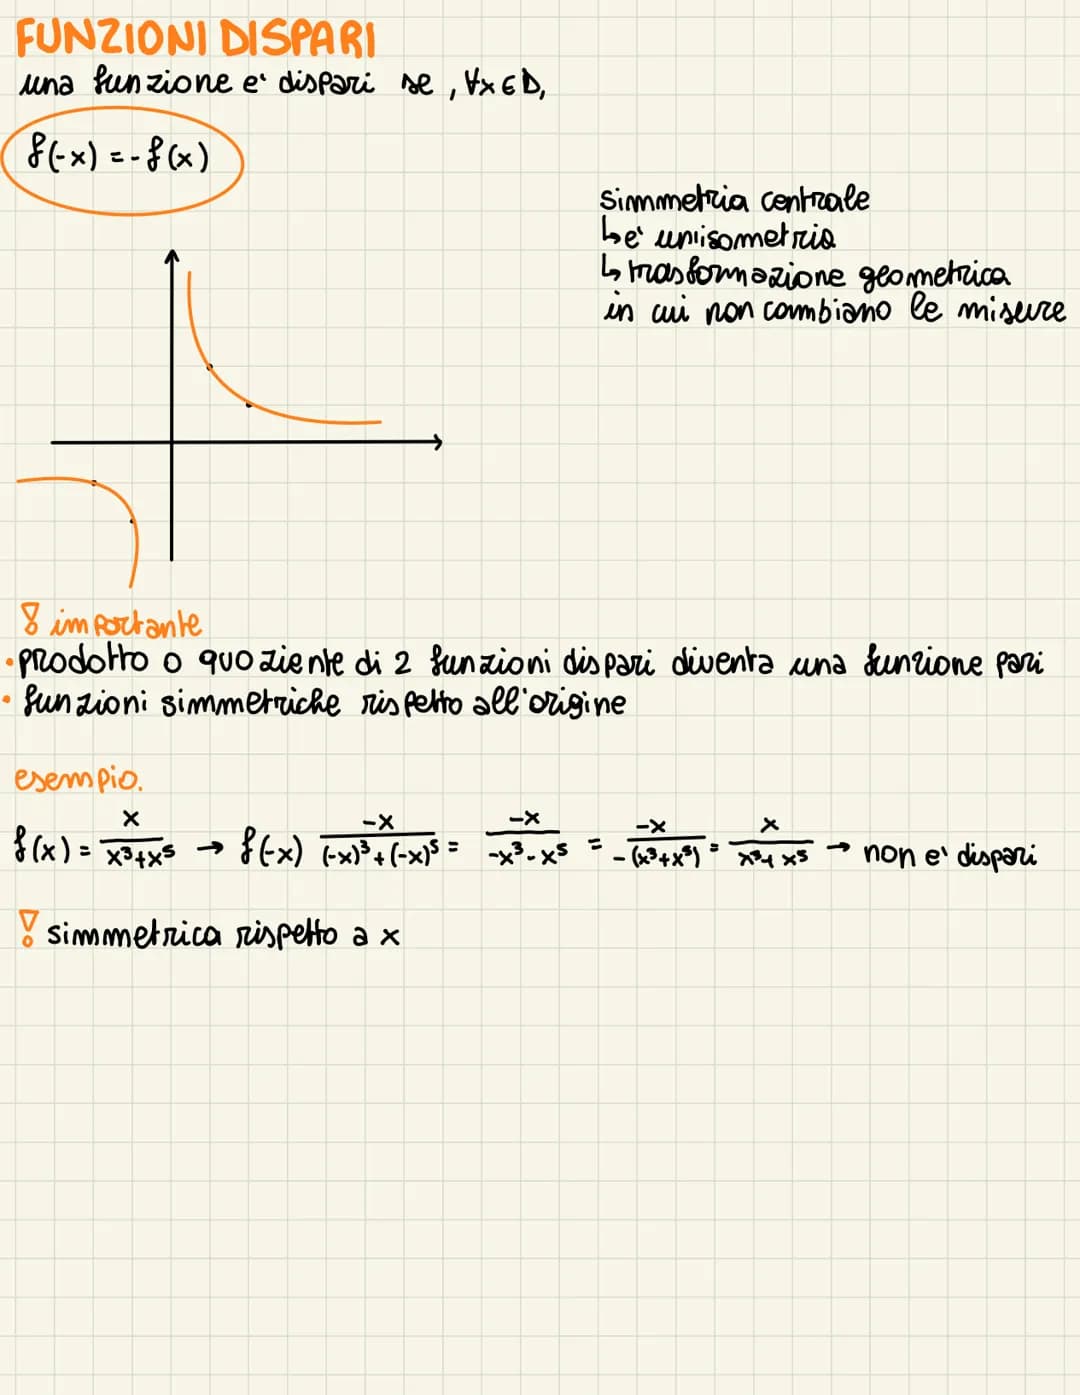 FUNZIONI DISPARI
una funzione e' dispari se , ∀x∈D,
f(-x) = - f(x)
simmetria centrale
↳ e' un'isometria
↳ trasformazione geometrica
in cui non cambiano le misure
! importante
• prodotto o quoziente di 2 funzioni dispari diventa una funzione pari
• funzioni simmetriche rispetto all'origine
esempio.
f(x) = x/(x³+x⁵) → f(-x) -x/((-x)³+(-x)⁵) = -x/(-x³-x⁵) = -x/(-(x³+x⁵)) = x/(x³+x⁵) → non e' dispari
! simmetrica rispetto a x